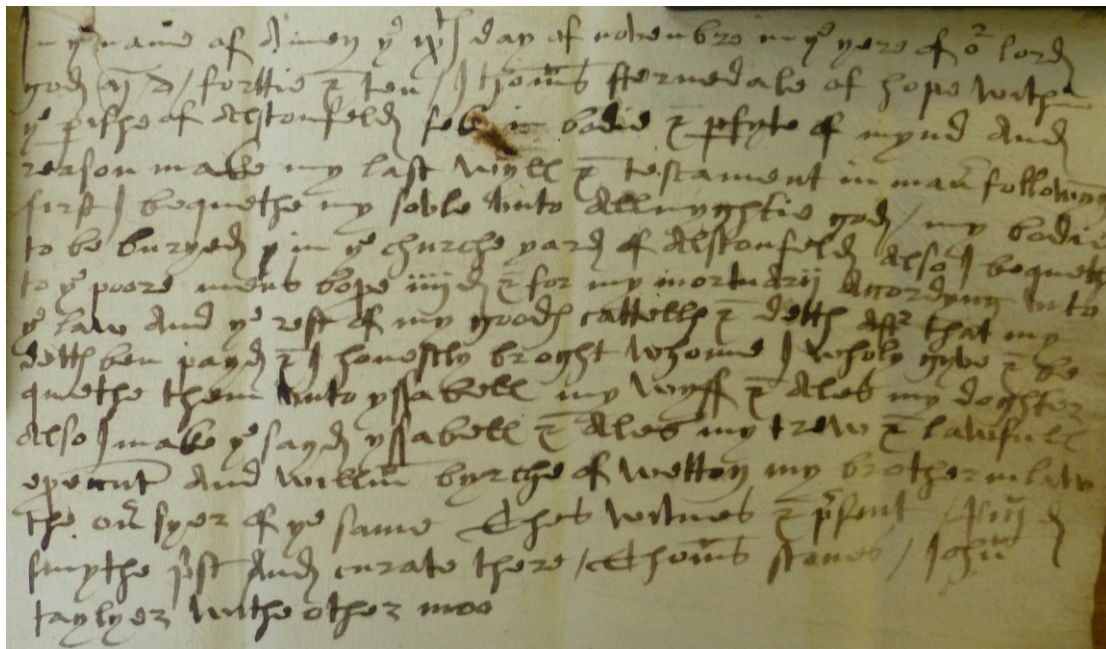 In ye name of Amen ye day of novenbre in ye yere of or lord
god forttie & ten / I Thom̄s sternedale of hope withe
ye p̄ishe of Alstonfeld in bodie & p̄fyte of mynd And
reason make my last wyll & testament in man̄ followyng
first I bequethe my sovle vnto Allmyghtie god / my bodie
to be buryed in ye churche yard of Alstonfeld Also I bequeth
to ye poore mens boxe iiijd & for my mortuarij Accordyng vnto
ye law And ye rest of my goods cattells & detts Aftr that my
detts ben payd & I honestly broght whome I wholy gyve & be
quethe them vnto yssabell my wyff & Ales my doghter
Also I make ye sayd yssabell & Ales my trew & lawfull
And willm̄ byrche of wetton my brother in law
the syer of ye same Thes witnes & p̄sent /
smythe p̄st And curate there / Thom̄s / Ihon̄
taylyer withe other moo